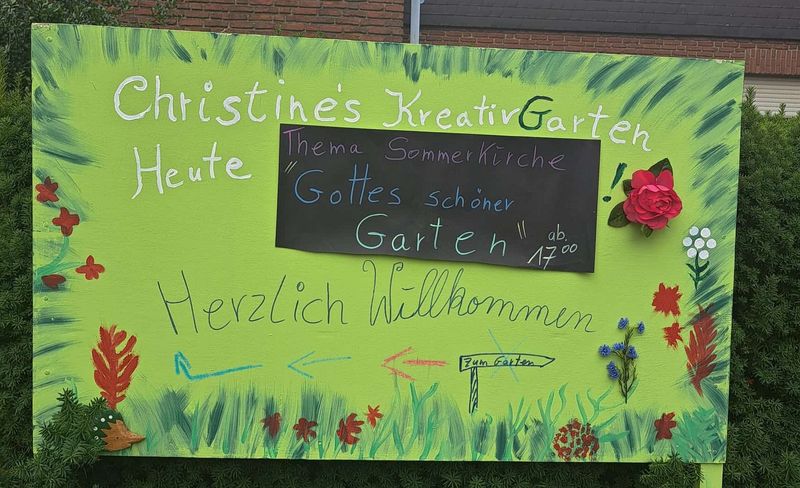 Christine's KreativGarten
Heute
Thema Sommerkirche
"Gottes schöner
Garten" ab.
17⁰⁰
!
Herzlich Willkommen
zum Garten